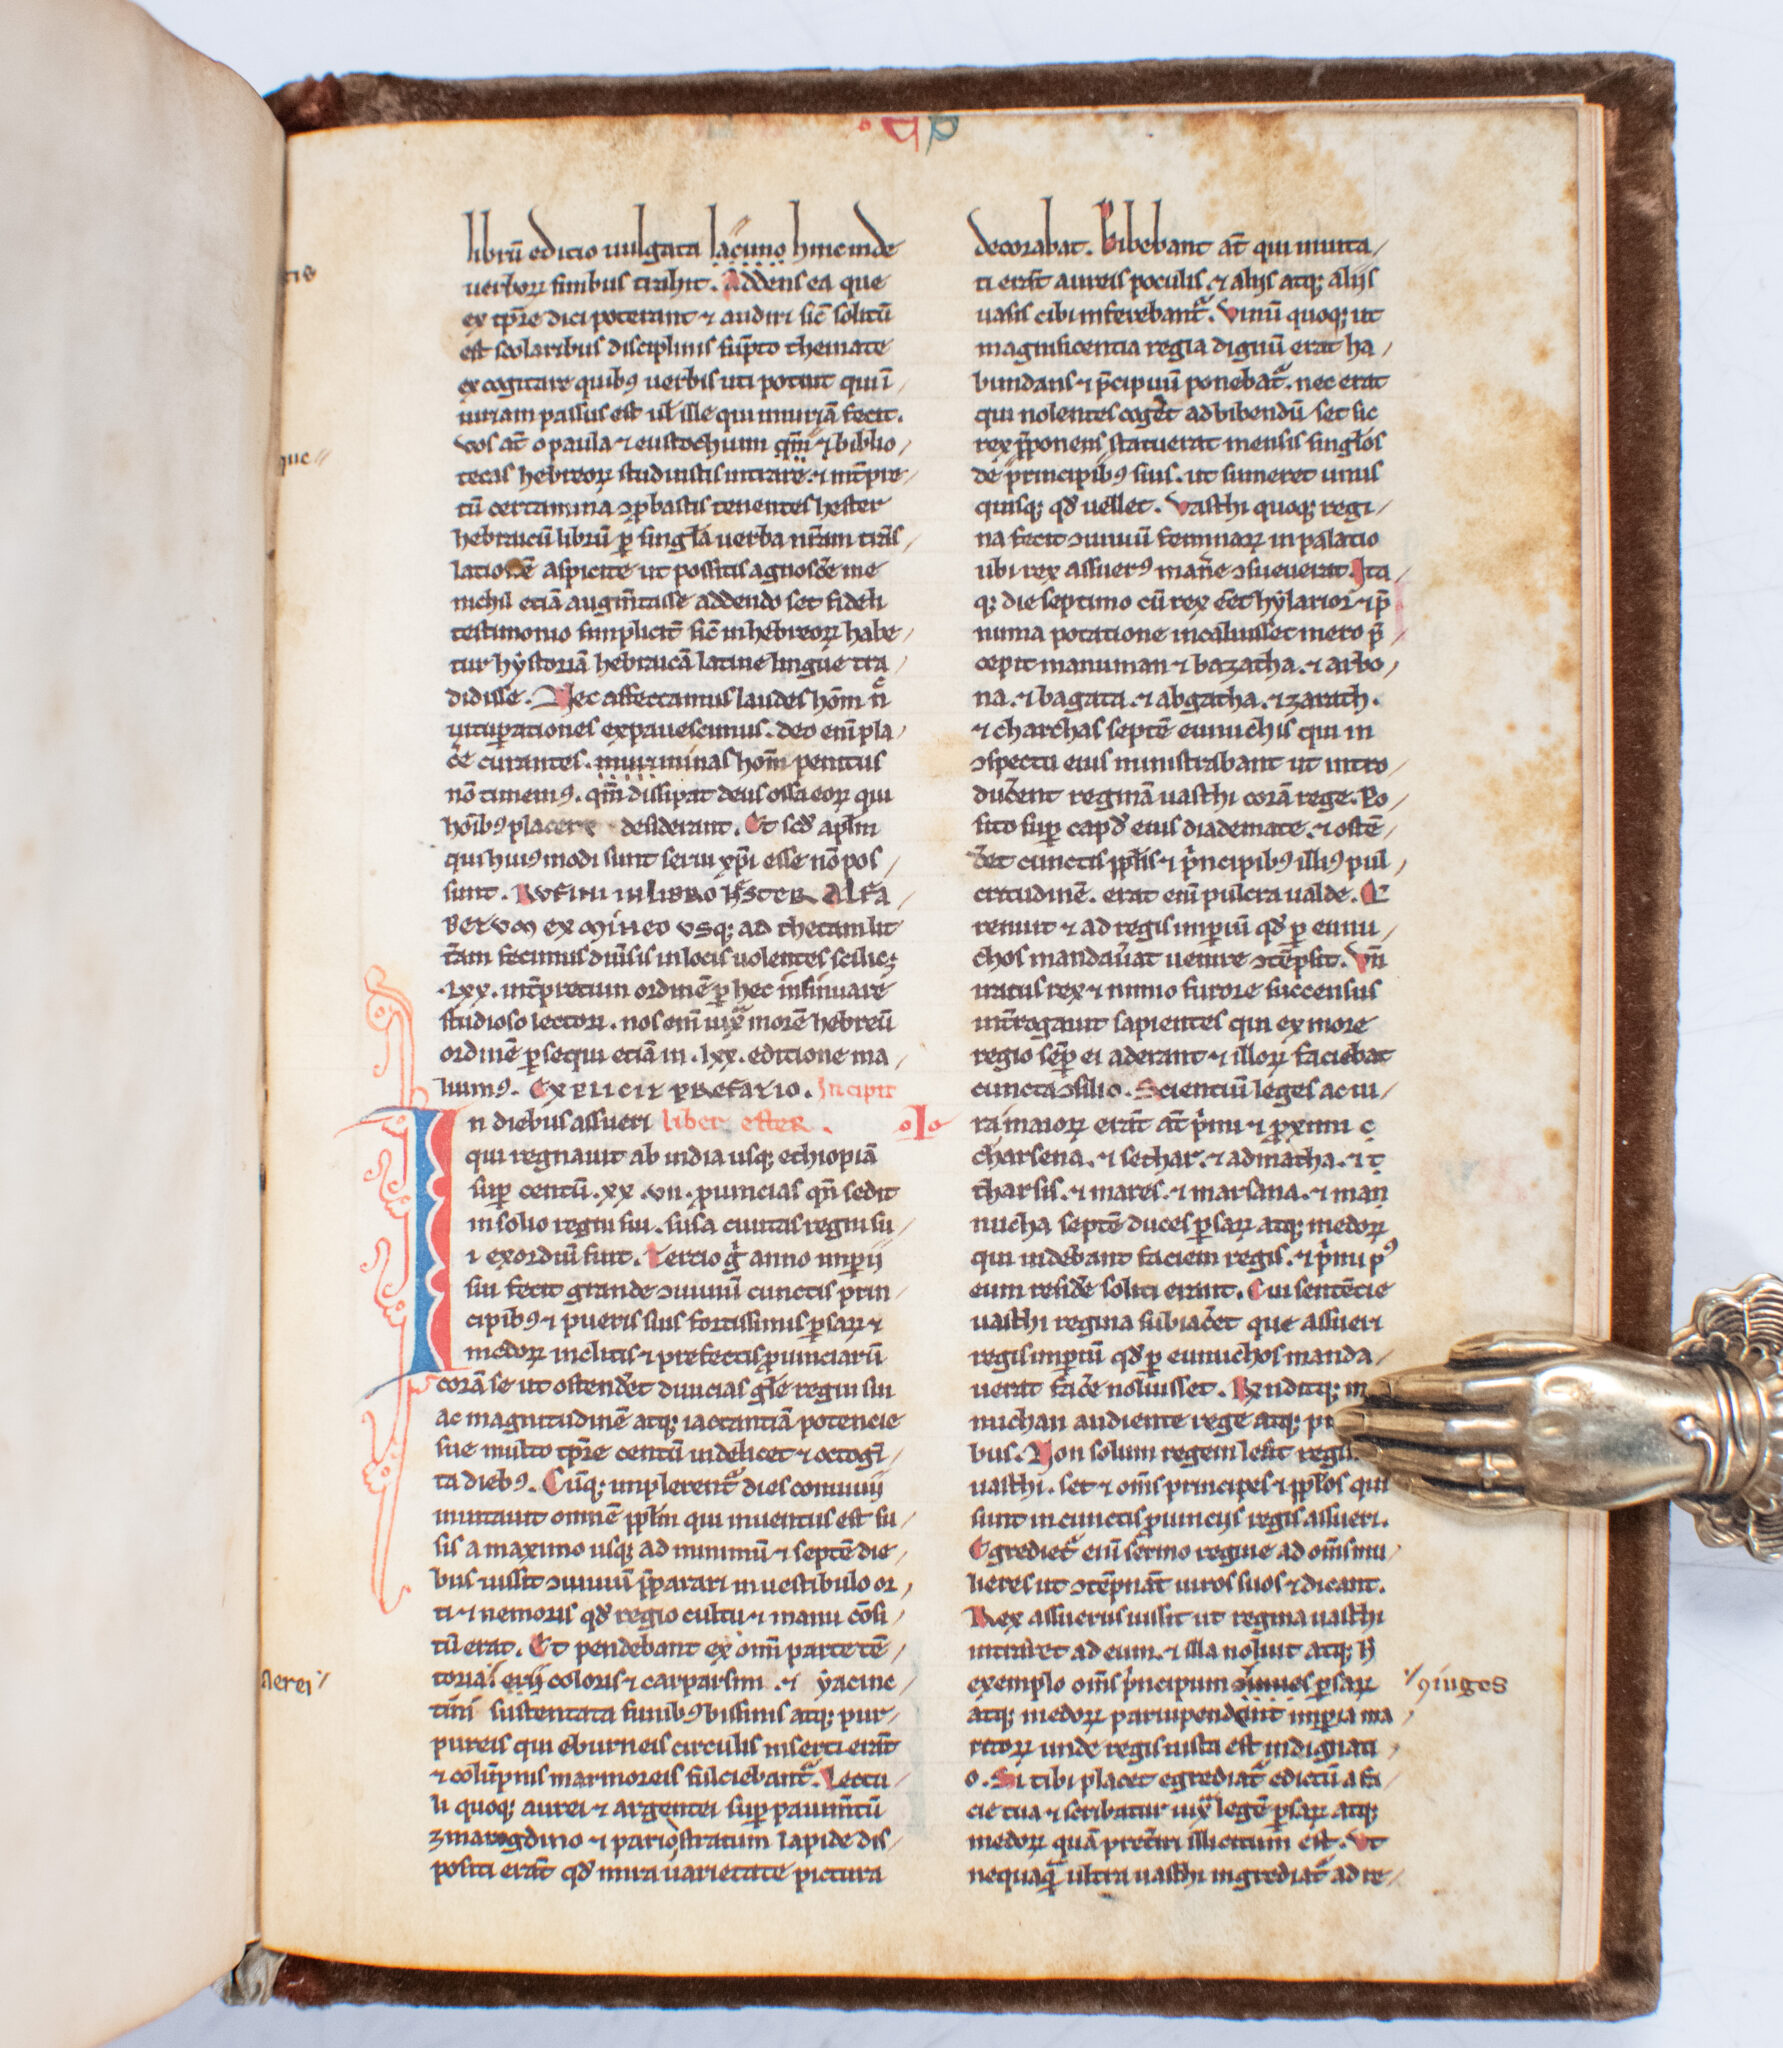 librū editio uulgata lacuno hincinde
uerborꝝ finibus trahit. Addens ea que
ex tp̄re dici poterant ⁊ audiri sic̄ solitū
est scolaribus disciplinis sūpto themate
excogitare quibꝰ uerbis uti potuit qui ī
iuriam passus est ul̄ ille qui iniuriā fecit.
Vos at̄ o paula ⁊ eustochium qm̄ ⁊ biblio
tecas hebreoꝝ studuistis intrare. ⁊ int̄pre
tū certamina ꝓbastis tenentes hester
hebraicū librū ꝑ singl̄a uerba nr̄am trās
lationē aspicite ut possitis agnosc̄e me
nichil etiā augm̄tasse addendo set fideli
testimonio simplicit̄ sic̄ in hebreoꝝ habe
tur hystoriā hebraicā latine lingue tra
didisse. Nec affectamus laudes hom̄ n̄
uitup̄ationes expauescimus. deo enī pla
c̄e curantes. minas hom̄ penitus
nō timemꝰ. qm̄ dissipat deus ossa eoꝝ qui
hoībꝰ placere desiderant. Et scd̄ apl̄m
qui huiꝰmodi sunt serui xp̄i esse nō pos
sunt. Rufini in libro hester alfa
betum ex mineo usqꝫ ad thetam lit
t̄am fecimus diuīsis in locis uolentes scilicꝫ
.lxx. int̄pretum ordinē ꝑ hec insinuare
studioso lectori. nos enī iux̄ morē hebreū
ordinē ꝑsequi etiā in .lxx. editione ma
luimꝰ. Explicit prefatio. Incipit
In diebus assueri liber ester.
qui regnauit ab india usqꝫ ethiopiā
suꝑ centū .xx .vii. ꝓuincias qn̄ sedit
in solio regni sui. susa ciuitas regni su
i exordiū fuit. Tercio g̊ anno imꝑii
sui fecit grande ꝯuiuiū cunctis prin
cipibꝰ ⁊ pueris suis fortissimis ꝑsaꝝ ⁊
medoꝝ inclitis ⁊ prefectis ꝓuinciarū
corā se ut ostend̄et diuicias gl̄e regni sui
ac magnitudinē atqꝫ iactantiā potencie
sue multo tp̄re centū uidelicet ⁊ octogī
ta diebꝰ. Cūqꝫ implerent̄ dies conuiuii
inuitauit omnē ppl̄m qui inuentus est su
sis a maximo usqꝫ ad minimū ⁊ septē die
bus iussit ꝯuiuiū p̄parari in uestibulo or
ti ⁊ nemoris qd̄ regio cultu ⁊ manu cōsi
tū erat. Et pendebant ex om̄i parte tē
toria erii coloris ⁊ carpasini .⁊ yacinc
tini sustentata funibꝰ bissinis atqꝫ pur
pureis qui eburneis circulis inserti erāt
⁊ colūpnis marmoreis fulciebant̄. Lectu
li quoqꝫ aurei ⁊ argentei suꝑ pauim̄tū
zmaragdino ⁊ pario stratum lapide dis
positi erāt qd̄ mira uarietate pictura
decorabat. Bibebant at̄ qui inuita
ti erāt aureis poculis. ⁊ aliis atqꝫ aliis
uasis cibi inferebant̄. Vinū quoqꝫ ut
magnificentia regia dignū erat ha
bundans ⁊ p̄cipuū ponebat̄. nec erat
qui nolentes coḡet ad bibendū set sic
rex p̄ponens statuerat mensis singl̄os
de principibꝰ suis. ut sumeret unus
quisqꝫ qd̄ uellet. Vasthi quoqꝫ regi
na fecit ꝯuiuiū feminaꝝ in palatio
ubi rex assuerꝰ man̄e ꝯsueuerat. Ita
qꝫ die septimo cū rex eēt hylarior ⁊ p̄
nimia potatione incaluisset mero p̄
cepit manuman ⁊ bazatha. ⁊ arbo
na. ⁊ bagata. ⁊ abgatha. ⁊ zarath.
⁊ charchas septē eunuchis qui in
ꝯspectu eius ministrabant ut intro
duc̄ent reginā uasthi corā rege. Po
sito suꝑ capd̄ eius diademate. ⁊ ostē
d̄et cunctis ppl̄is ⁊ principibꝰ illiꝰ pul
critudinē. erat enī pulcra ualde. Q
renuit ⁊ ad regis imꝑiū qd̄ ꝑ eunu
chos mandau̅at uenire ꝯtēpsit. Vn̄
iratus rex ⁊ nimio furore succensus
int̄rogauit sapientes qui ex more
regio semꝑ ei aderant ⁊ illoꝝ faciebat
cuncta ꝯsilio. Scientiū leges ac iu
ra maioꝝ erāt at̄ primi ⁊ ꝓximi
charsena. ⁊ sethar. ⁊ admatha. ⁊ t
tharsis. ⁊ mares. ⁊ marsana. ⁊ mam
nucha septē duces ꝑsaꝝ atqꝫ medoꝝ
qui uidebant faciem regis. ⁊ primi pꝰ
eum resid̄e soliti erant. Cui sentēcie
uasthi regina subiac̄et que assueri
regis imꝑiū qd̄ ꝑ eunuchos manda
uerat fac̄e noluisset. Rn̄ditqꝫ
nuchan audiente rege atqꝫ
bus. Non solum regem lesit
uasthi. set ⁊ om̄s principes ⁊ ppl̄os qui
sunt in cunctis ꝓuinciis regis assueri.
Egrediet̄ enī sermo regine ad om̄s mu
lieres ut ꝯtēpnāt uiros suos ⁊ dicant.
Rex assuerus iussit ut regina uasthi
intrar̄et ad eum. ⁊ illa noluit atqꝫ h̄
exemplo om̄s principum ꝑsaꝝ
atqꝫ medoꝝ paruipendent imꝑia ma
ritoꝝ unde regis iusta est indignati
o. Si tibi placet egrediat̄ edictū a fa
cie tua ⁊ scribatur iux̄ legē ꝑsaꝝ atqꝫ
medoꝝ quā p̄teriri illicitum est. Vt
nequaq̄ ultra uasthi ingrediat̄ ad re
aerei
ꝯiuges